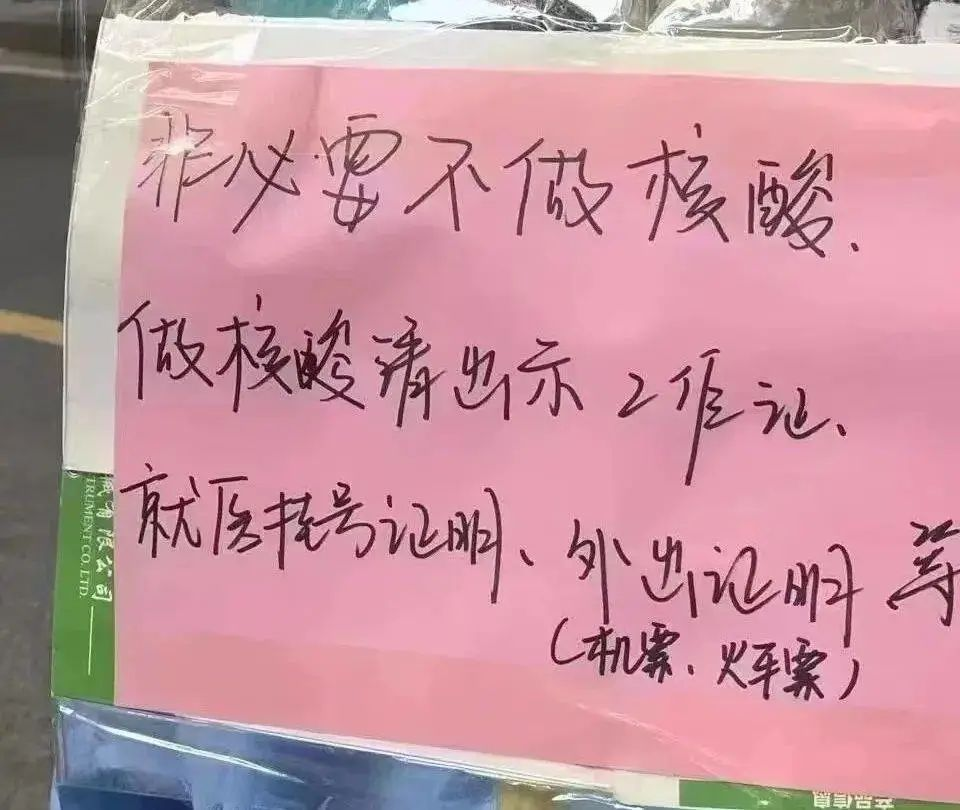 非必要不做核酸.
做核酸请出示工作证、
就医挂号证明、外出证明等
(机票、火车票)
械有限公司
TRUMENT CO.,LTD.
产品信息